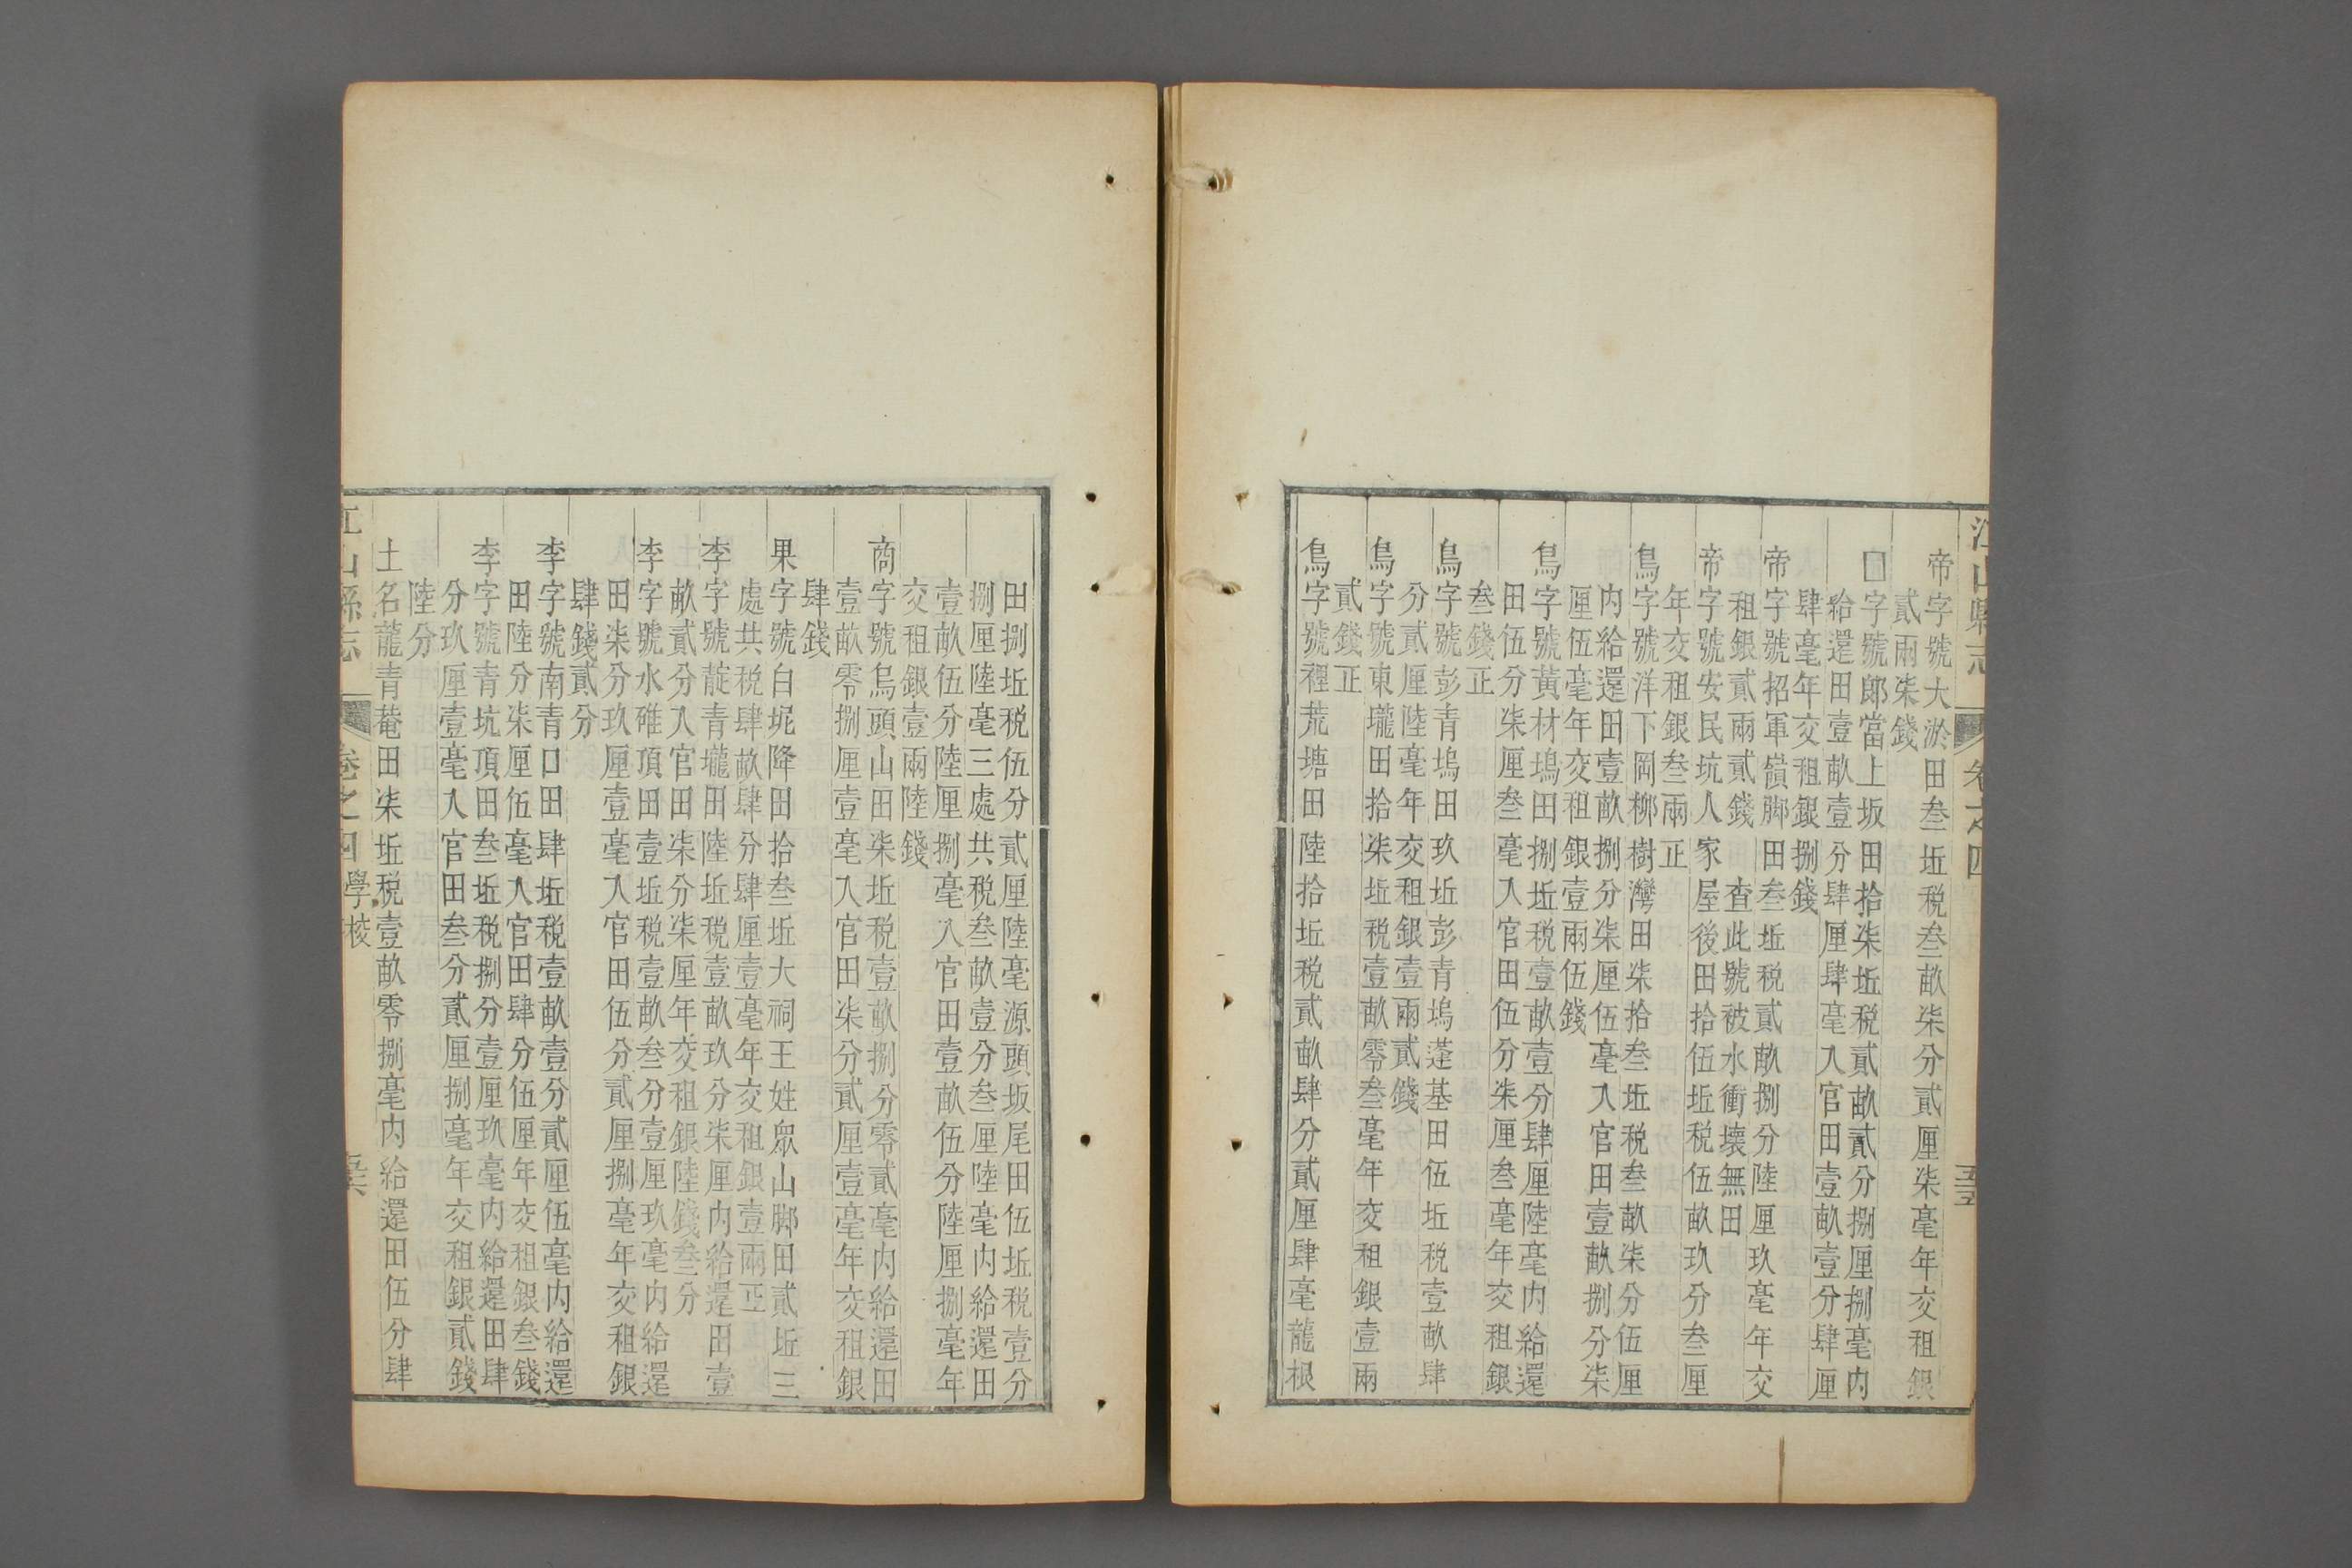 江山縣志
卷之四
五五
帝字號大淤田叁坵税叁畝柒分貳厘柒毫年交租銀
貳兩柒錢
□字號郎當上坂田拾柒坵税貳畝貳分捌厘捌毫内
給還田壹畝壹分肆厘肆毫入官田壹畝壹分肆厘
肆毫年交租銀捌錢
帝字號招軍嶺脚田叁坵税貳畝捌分陸厘玖毫年交
租銀貳兩貳錢 查此號被水衝壞無田
帝字號安民坑人家屋後田拾伍坵税伍畝玖分叁厘
年交租銀叁兩正
鳥字號洋下岡柳樹灣田柒拾叁坵税叁畝柒分伍厘
内給還田壹畝捌分柒厘伍毫入官田壹畝捌分柒
厘伍毫年交租銀壹兩伍錢
鳥字號黃材塢田捌坵税壹畝壹分肆厘陸毫内給還
田伍分柒厘叁毫入官田伍分柒厘叁毫年交租銀
叁錢正
鳥字號彭青塢田玖坵彭青塢蓬基田伍坵税壹畝肆
分貳厘陸毫年交租銀壹兩貳錢
鳥字號東壠田拾柒坵税壹畝零叁毫年交租銀壹兩
貳錢正
鳥字號裡荒塘田陸拾坵税貳畝肆分貳厘肆毫龍根
田捌坵税伍分貳厘陸毫源頭坂尾田伍坵税壹分
捌厘陸毫三處共税叁畝壹分叁厘陸毫内給還田
壹畝伍分陸厘捌毫入官田壹畝伍分陸厘捌毫年
交租銀壹兩陸錢
商字號烏頭山田柒坵税壹畝捌分零貳毫内給還田
壹畝零捌厘壹毫入官田柒分貳厘壹毫年交租銀
肆錢
果字號白坭降田拾叁坵大祠王姓眾山脚田貳坵三
處共税肆畝肆分肆厘壹毫年交租銀壹兩正
李字號龍青壠田陸坵税壹畝玖分柒厘内給還田壹
畝貳分入官田柒分柒厘年交租銀陸錢叁分
李字號水碓頂田壹坵税壹畝叁分壹厘玖毫内給還
田柒分玖厘壹毫入官田伍分貳厘捌毫年交租銀
肆錢貳分
李字號南青口田肆坵税壹畝壹分貳厘伍毫内給還
田陸分柒厘伍毫入官田肆分伍厘年交租銀叁錢
李字號青坑頂田叁坵税捌分壹厘玖毫内給還田肆
分玖厘壹毫入官田叁分貳厘捌毫年交租銀貳錢
陸分
土名龍青菴田柒坵税壹畝零捌毫内給還田伍分肆
江山縣志
卷之四學校
五六